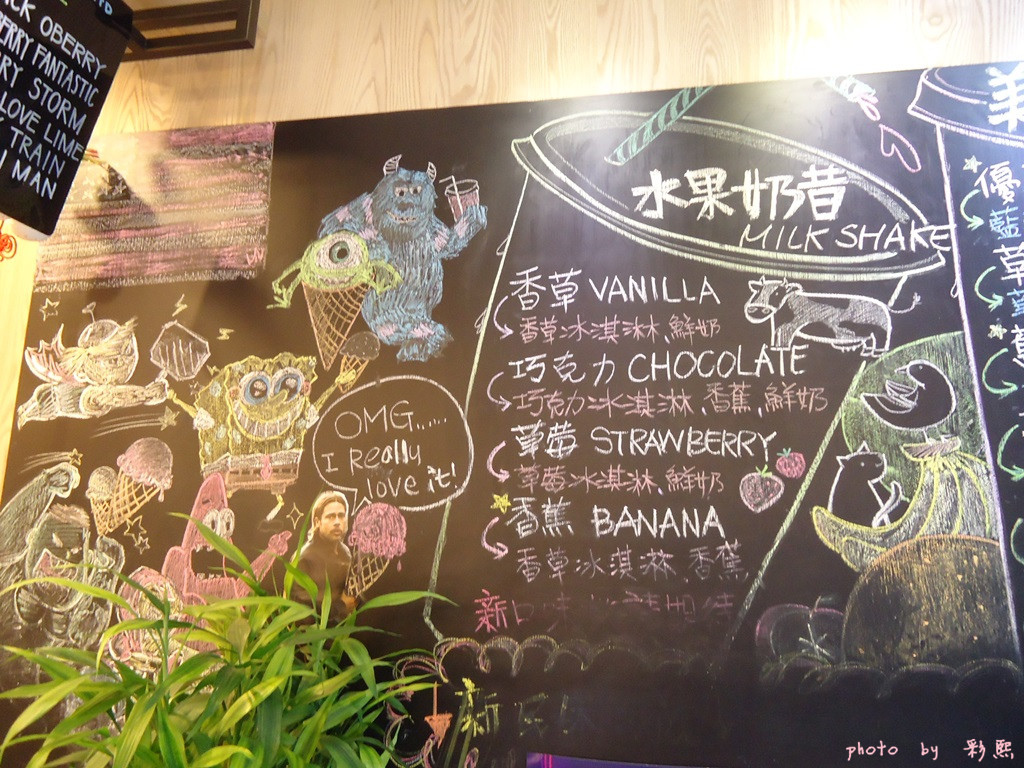 OBERRY
FANTASTIC
STORM
LOVE LIME
TRAIN
MAN
水果奶昔
MILK SHAKE
香草 VANILLA
香草冰淇淋、鮮奶
巧克力 CHOCOLATE
巧克力冰淇淋、香蕉、鮮奶
草莓 STRAWBERRY
草莓冰淇淋、鮮奶
香蕉 BANANA
香草冰淇淋、香蕉
新口味
OMG......
I Really
love it!
優
藍
草
photo by 彩熙